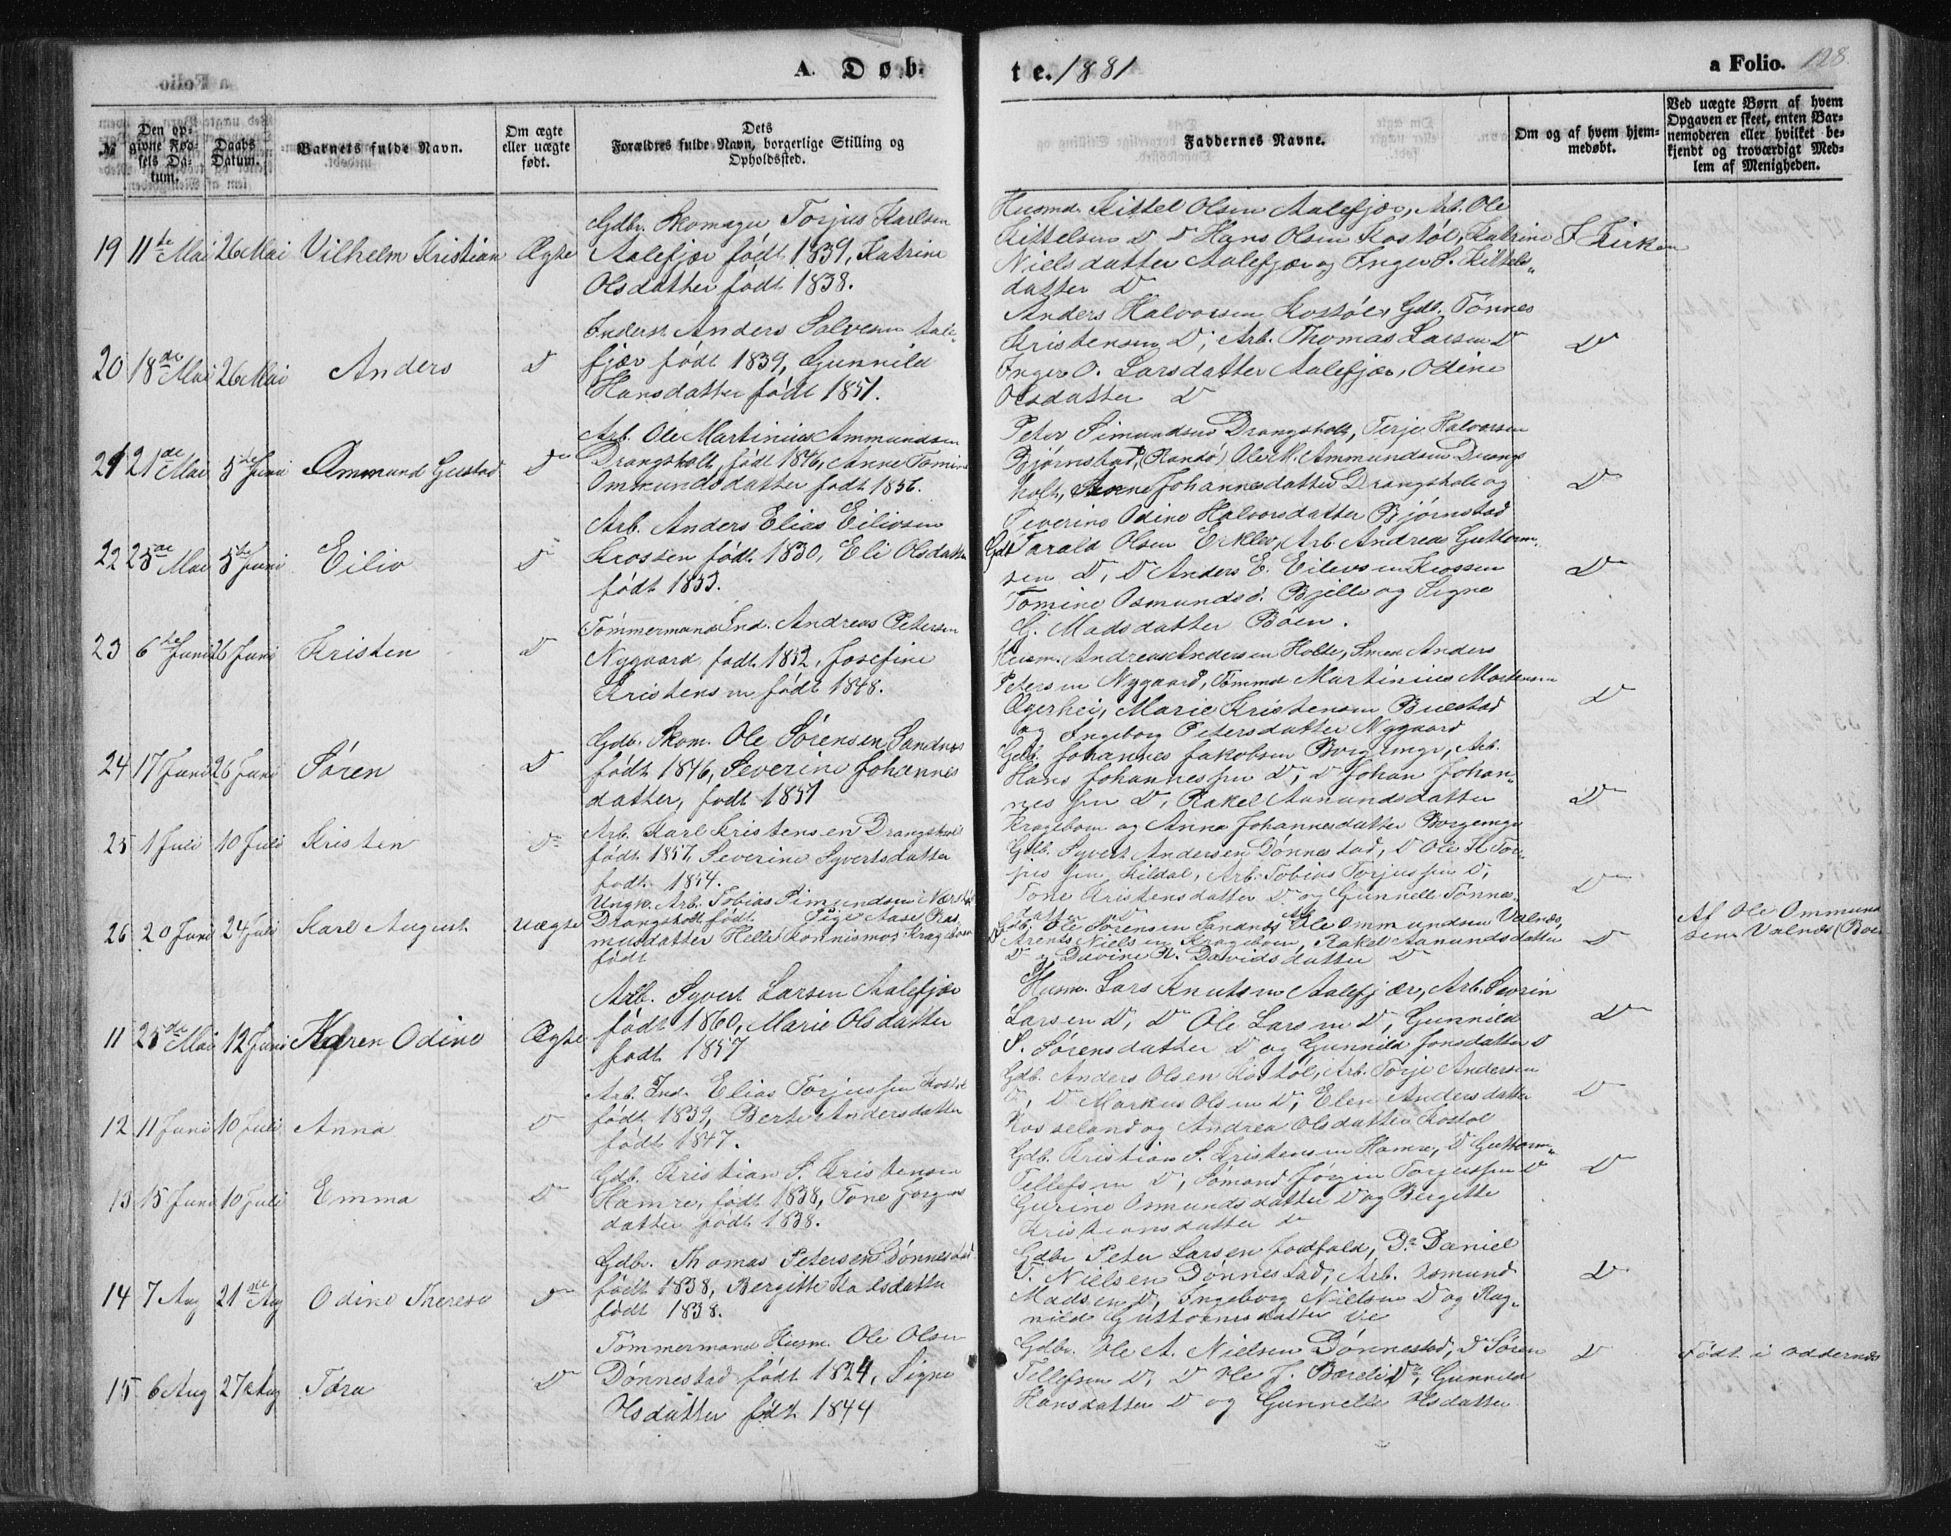 A. Døb-
te. 1881
a Folio. 128.
№
Den op-
givne Fød-
sels Da-
tum.
Daabs
Datum.
Barnets fulde Navn.
Om ægte
eller uægte
født.
Dets
Forældres fulde Navn, borgerlige Stilling og
Opholdssted.
Faddernes Navne.
Om og af hvem hjem-
medøbt.
Ved uægte Børn af hvem
Opgaven er skeet, enten Bar-
nemoderen eller hvilket be-
kjendt og troværdigt Med-
lem af Menigheden.
19 11te Mai 26 Mai Vilhelm Kristian Ægte
Gdbr. Skomager Torjus Karlsen
Aalefjær født 1839, Katrine
Olsdatter født 1838.
Husmd. Kittel Olsen Aalefjær, Arb. Ole
Kittelsen D D Hans Olsen Kostøl, Katrine
Nielsdatter Aalefjær og Inger S. Kittels-
datter D
I Kirken
20 18de Mai 26 Mai Anders D
Inderst Anders Salvesen Aale-
fjær født 1839, Gunnild
Hansdatter født 1851.
Anders Halvorsen Kostøl, Gdb. Tønnes
Kristensen D, Arb. Thomas Larsen D
Inger O. Larsdatter Aalefjær, Odine
Olsdatter D
D
21 21de Mai 5te Juni Ommund Gustav D
Arb. Ole Martinius Ammundsen
Drangsholt, født 1846, Anne Tomine
Ommundsdatter født 1856.
Peter Simundsen Drangsholt, Terje Halvorsen
Bjørnstad, (Randø) Ole M. Ammundsen Drangs
holt, Johannesdatter Drangsholt og
Severine Odine Halvorsdatter Bjørnstad
D
22 25de Mai 5te Juni Eiliv D
Arb. Anders Elias Eilivsen
Krossen født 1830, Eli Olsdatter
født 1833.
Gdb Tarald Olsen Erklev, Arb. Andreas Guttorm-
sen D, D Anders E. Eilevsen Krossen
Tomine Osmundsd. Bjelle og Signe
G. Madsdatter Boen.
D
23 6te Juni 26 Juni Kristen D
Tømmermand Ind. Andreas Petersen
Nygaard født 1852, Josefine
Kristensen født 1848.
Husm. Andreas Andersen Holte, Smed Anders
Petersen Nygaard, Tømmd Martinius Mortensen
Ægerhei, Marie Kristensen Buestad
og Ingeborg Petersdatter Nygaard
D
24 17 Juni 26 Juni Søren D
Gdb. Skom. Ole Sørensen Sandnes
født 1846, Severine Johannes
datter, født 1851
Gdb. Johannes Jakobsen Borgemyr, Arb.
Hans Johannessen D, D Johan Johan-
nessen D, Rakel Aanundsdatter
Krageboen og Anna Johannesdatter Borgemyr
D
25 1 Juli 10 Juli Kristen D
Arb. Karl Kristensen Drangsholt
født 1857 Severine Syvertsdatter
født 1854.
Gdb. Syvert Andersen Dønnestad, D Ole K. Tor-
Kildal, Arb. Tobias Torjussen D,
Tone Kristensdatter D og Gunnelle Tønnes-
datter D
D
26 20 Juni 24 Juli Karl August Uægte
Ungk. Arb. Tobias Simundsen
Drangsholt født Pige Aase Ras
musdatter Helle Krageboen
født
Gdb. Ole Sørensen Sandnes, Ole Ommundsen Valnes,
Arents Nielsen Krageboen, Rakel Aanundsdatter
D og Davine R. Davidsdatter D
D
Af Ole Ommund
sen Valnes (Boen
11 25de Mai 12 Juni Karen Odine Ægte
Arb. Syvert Larsen Aalefjær
født 1860, Marie Olsdatter
født 1857
Husm. Lars Knutsen Aalefjær, Arb. Severin
Larsen D, D Ole Larsen D, Gunnild
S. Sørensdatter D og Gunnild Jonsdatter D
D
12 11 Juni 10 Juli Anna D
Arb. Ind. Elias Torjussen Kostøl
født 1839, Berte Andersdatter
født 1847.
Gdb. Anders Olsen Kostøl, Arb. Torje Andersen
D, D Markus Olsen D, Elen Andersdatter
Rosseland og Andrea Olsdatter Kostøl
D
13 15 Juni 10 Juli Emma D
Gdb. Kristian S. Kristensen
Hamre, født 1838, Tone Jørgens
datter født 1838.
Gdb. Kristian S. Kristensen Hamre, D Guttorm
Tellefsen D, Sømand Jørgen Torjussen D
Gurine Osmundsdatter D og Bergitte
Kristiansdatter D
D
14 7 Aug 21de Aug Odine Therese D
Gdbr. Thomas Petersen Dønnestad
født 1838, Bergitte
født 1838.
Gdbr Peter Larsen Fodfald, Do Daniel
T. Nielsen Dønnestad, Arb. Osmund
Madsen D, Ingeborg Nielsen D og Rag-
nild Guttormsdatter
D
15 6 Aug 27 Aug Tora D
Tømmermand Husm. Ole Olsen
Dønnestad født 1824, Signe
Olsdatter født 1844
Gdbr. Ole A. Nielsen Dønnestad, D Søren
Tellefsen D, D Ole J. Bærelid, Gunnild
Hansdatter D og Gunnelle Olsdatter
D
Født i Oddernes